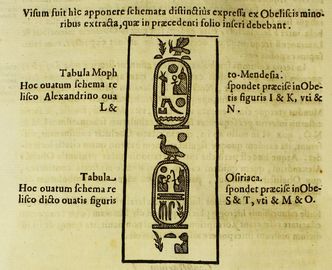 Visum fuit hîc apponere schemata distinctiùs expressa ex Obeliscis mino-
ribus extracta, quæ in præcedenti folio inseri debebant.
Tabula Moph to-Mendesia.
Hoc ouatum schema re spondet præcisè in Obe-
lisco Alexandrino oua tis figuris I & K, vti &
L & N.
Tabula Osiriaca.
Hoc ouatum schema re spondet præcisè in Obe-
lisco dicto ouatis figuris S & T, vti & M & O.